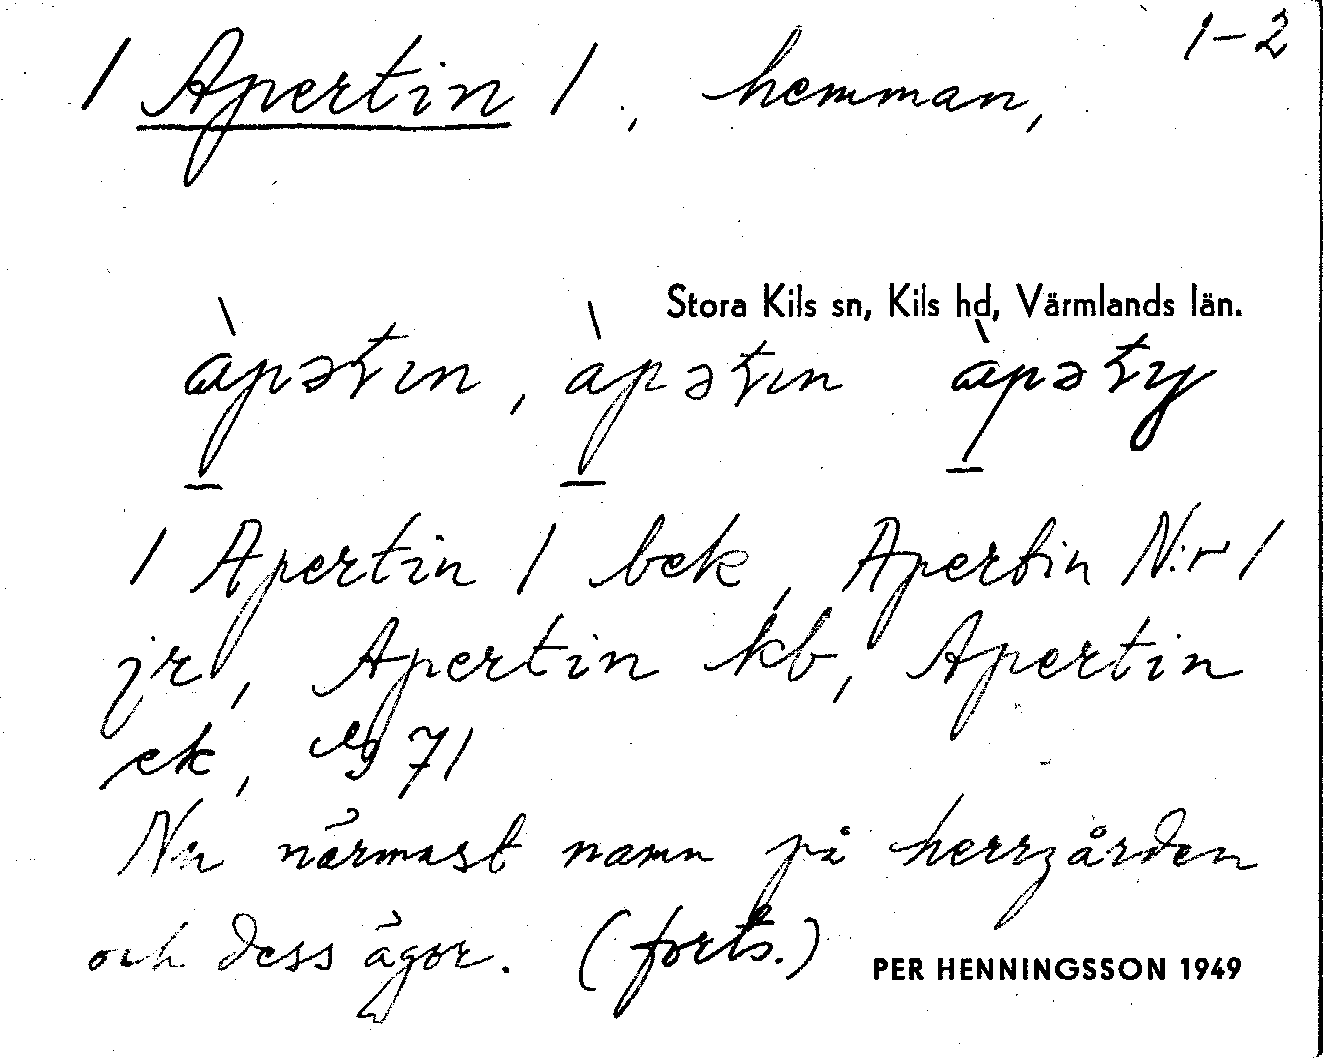 1-2
/ Apertin /, hemman,
Stora Kils sn, Kils hd, Värmlands län.
/ Apertin / bek, Apertin N:r 1
jr, Apertin kb, Apertin
ek, 71
Nu närmast namn på herrgården
och dess ägor. (forts.)
PER HENNINGSSON 1949